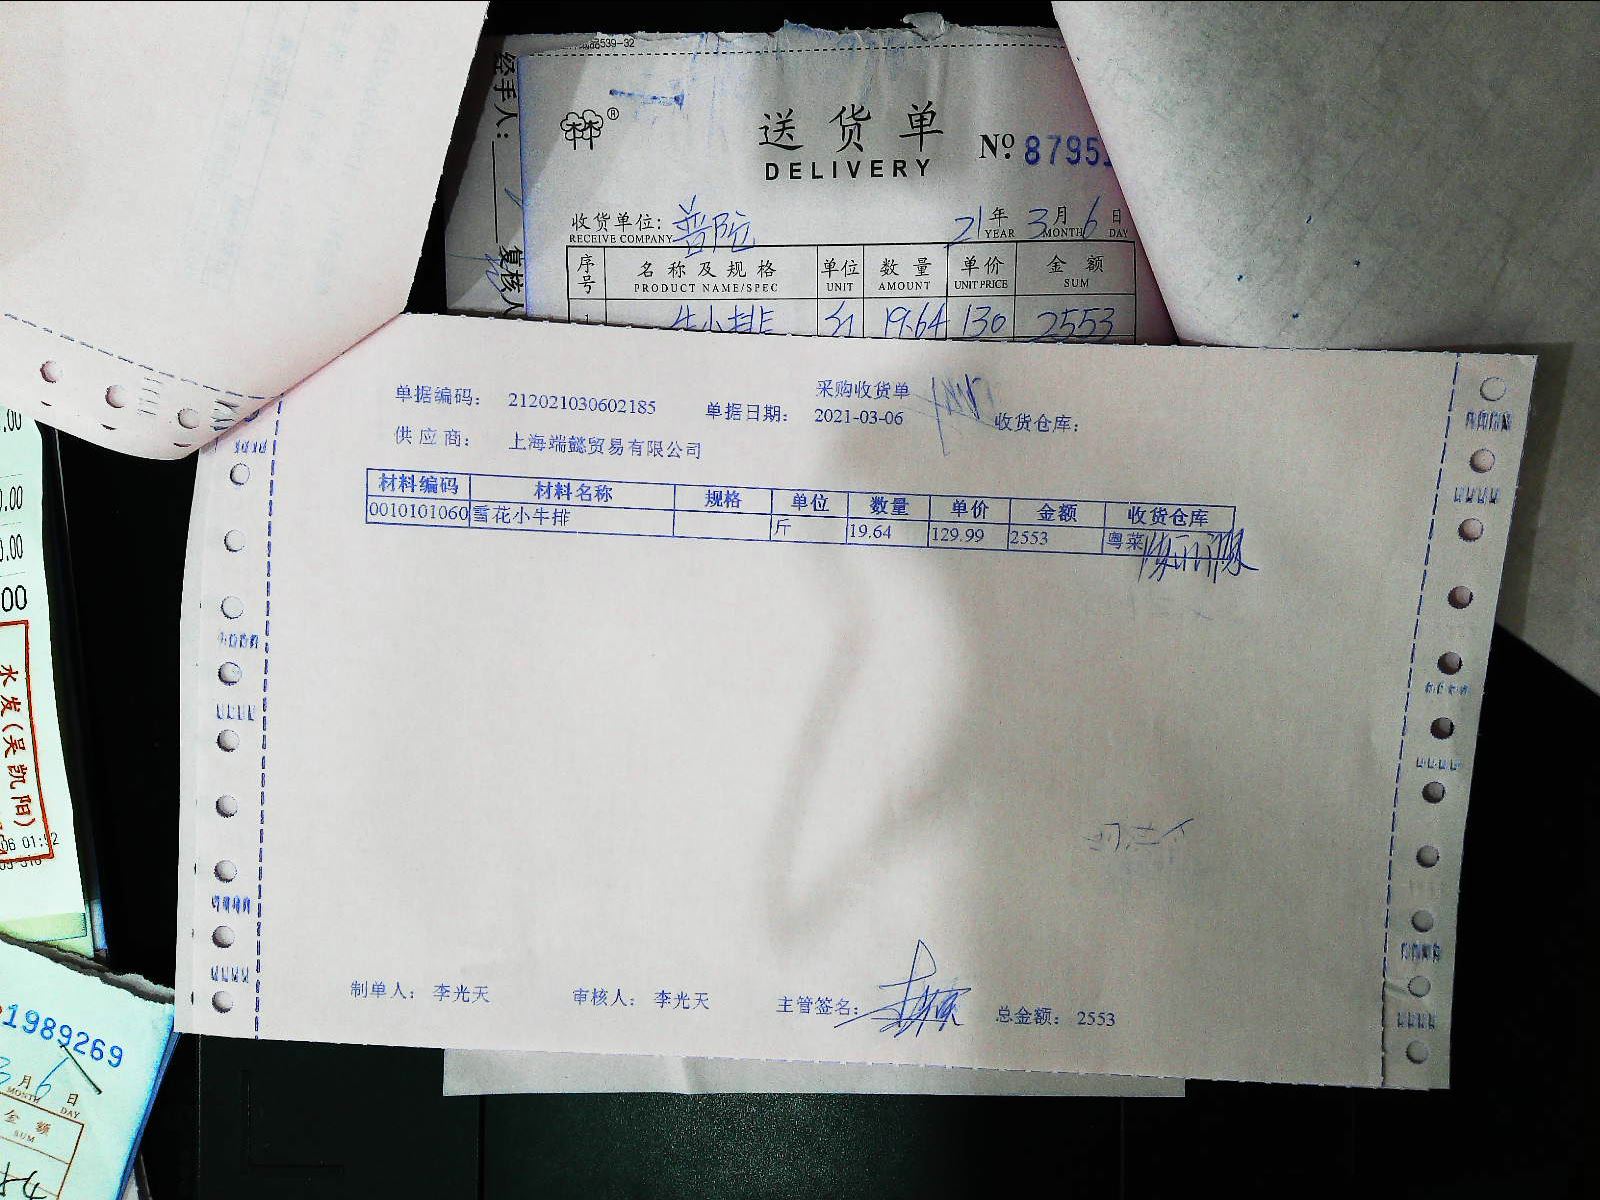 送货单
DELIVERY
No. 8795
收货单位: 普陀 21年3月6日
RECEIVE COMPANY YEAR MONTH DAY
序号 名称及规格 单位 数量 单价 金额
PRODUCT NAME/SPEC UNIT AMOUNT UNIT PRICE SUM
1 牛小排 19.64 130 2553
经手人:
复核人
采购收货单
单据编码: 212021030602185 单据日期: 2021-03-06 收货仓库:
供应商: 上海端懿贸易有限公司
材料编码 材料名称 规格 单位 数量 单价 金额 收货仓库
0010101060 雪花小牛排 斤 19.64 129.99 2553 粤菜
制单人: 李光天 审核人: 李光天 主管签名: 总金额: 2553
.00
0.00
0.00
00
水发(吴凯阳)
06 01:52
1989269
月6日
MONTH DAY
金额
SUM